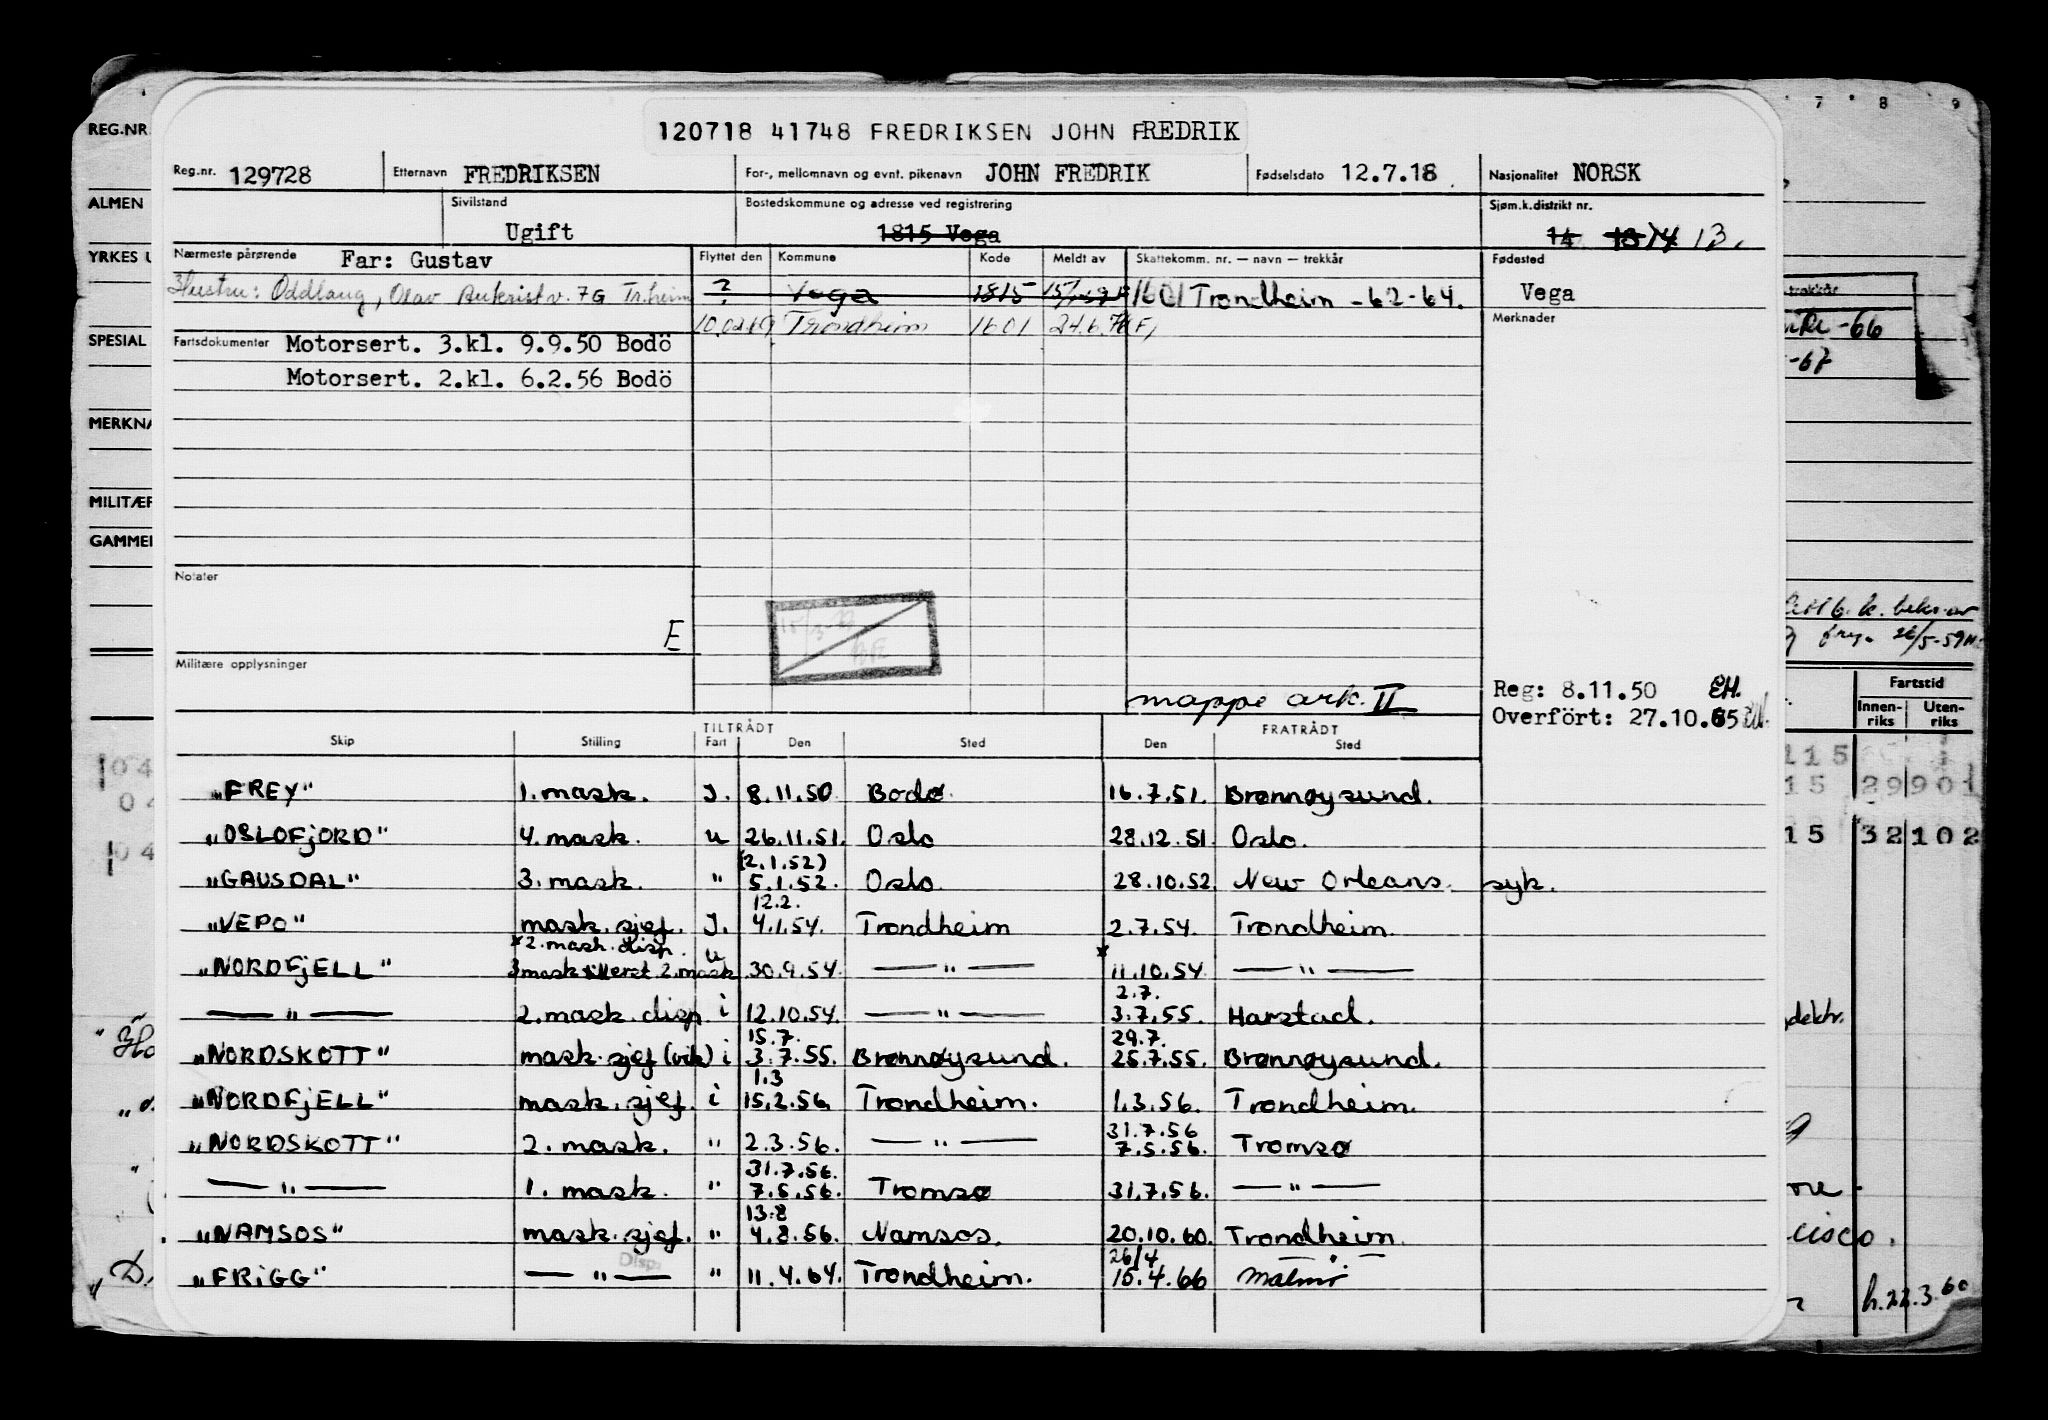 120718 41748 FREDRIKSEN JOHN FREDRIK
Reg.nr. 129728 Etternavn FREDRIKSEN For-, mellomnavn og evnt. pikenavn JOHN FREDRIK Fødselsdato 12.7.18 Nasjonalitet NORSK
Sivilstand Bostedskommune og adresse ved registrering Sjøm.k.distrikt nr.
Ugift 1815 Vega 14 13 14 13.
Nærmeste pårørende Far: Gustav Flyttet den Kommune Kode Meldt av Skattekomm. nr. — navn — trekkår Fødested
Hustru: Oddlaug, Olav Aukrist v. 7G Tr.heim ? Vega 1815 1601 Trondheim -62-64. Vega
Trondheim 1601 24.6. Merknader
Fartsdokumenter Motorsert. 3.kl. 9.9.50 Bodö
Motorsert. 2.kl. 6.2.56 Bodö
Notater
E
Militære opplysninger
mappe ark. II
Reg: 8.11.50 EH.
Overfört: 27.10.65
TILTRÅDT FRATRÅDT
Skip Stilling Fart Den Sted Den Sted
"FREY" 1. mask. I. 8.11.50 Bodø. 16.7.51. Brønnøysund.
"OSLOFjORD" 4. mask. u 26.11.51. Oslo 28.12.51. Oslo.
(2.1.52)
"GAUSDAL" 3. mask. " 5.1.52. Oslo. 28.10.52 New Orleans. syk.
12.2.
"VEPO" mask. sjef. I. 4.1.54. Trondheim 2.7.54. Trondheim.
* 2. mask. disp. *
"NORDFjELL" 3 mask tilleret 2. mask u 30.9.54. — " — 11.10.54 — " —
2.7.
— " — 2. mask. disp i 12.10.54. — " — 3.7.55. Harstad.
15.7. 29.7.
"NORDSKOTT" mask. sjef (vik) i 3.7.55. Brønnøysund. 25.7.55. Brønnøysund.
1.3
"NORDFjELL" mask. sjef. i 15.2.56. Trondheim. 1.3.56. Trondheim.
31.7.56
"NORDSKOTT" 2. mask. " 2.3.56. — " — 7.5.56. Tromsø
31.7.56.
— " — 1. mask. " 7.5.56. Tromsø 31.7.56. — " —
13.8
"NAMSOS" mask. sjef. " 4.8.56. Namsos. 20.10.60. Trondheim.
Disp. 26/4
"FRiGG" — " — " 11.4.64. Trondheim. 15.4.66 Malmö
REG.NR.
ALMEN
YRKES U
SPESIAL
MERKNA
MILITÆR
GAMMEL
7 8 9
trekkår
-66
-67
frg. 26/5-59
Fartstid
Innen-riks Uten-riks
115
15 29 901
15 32 102
h.22.3.60